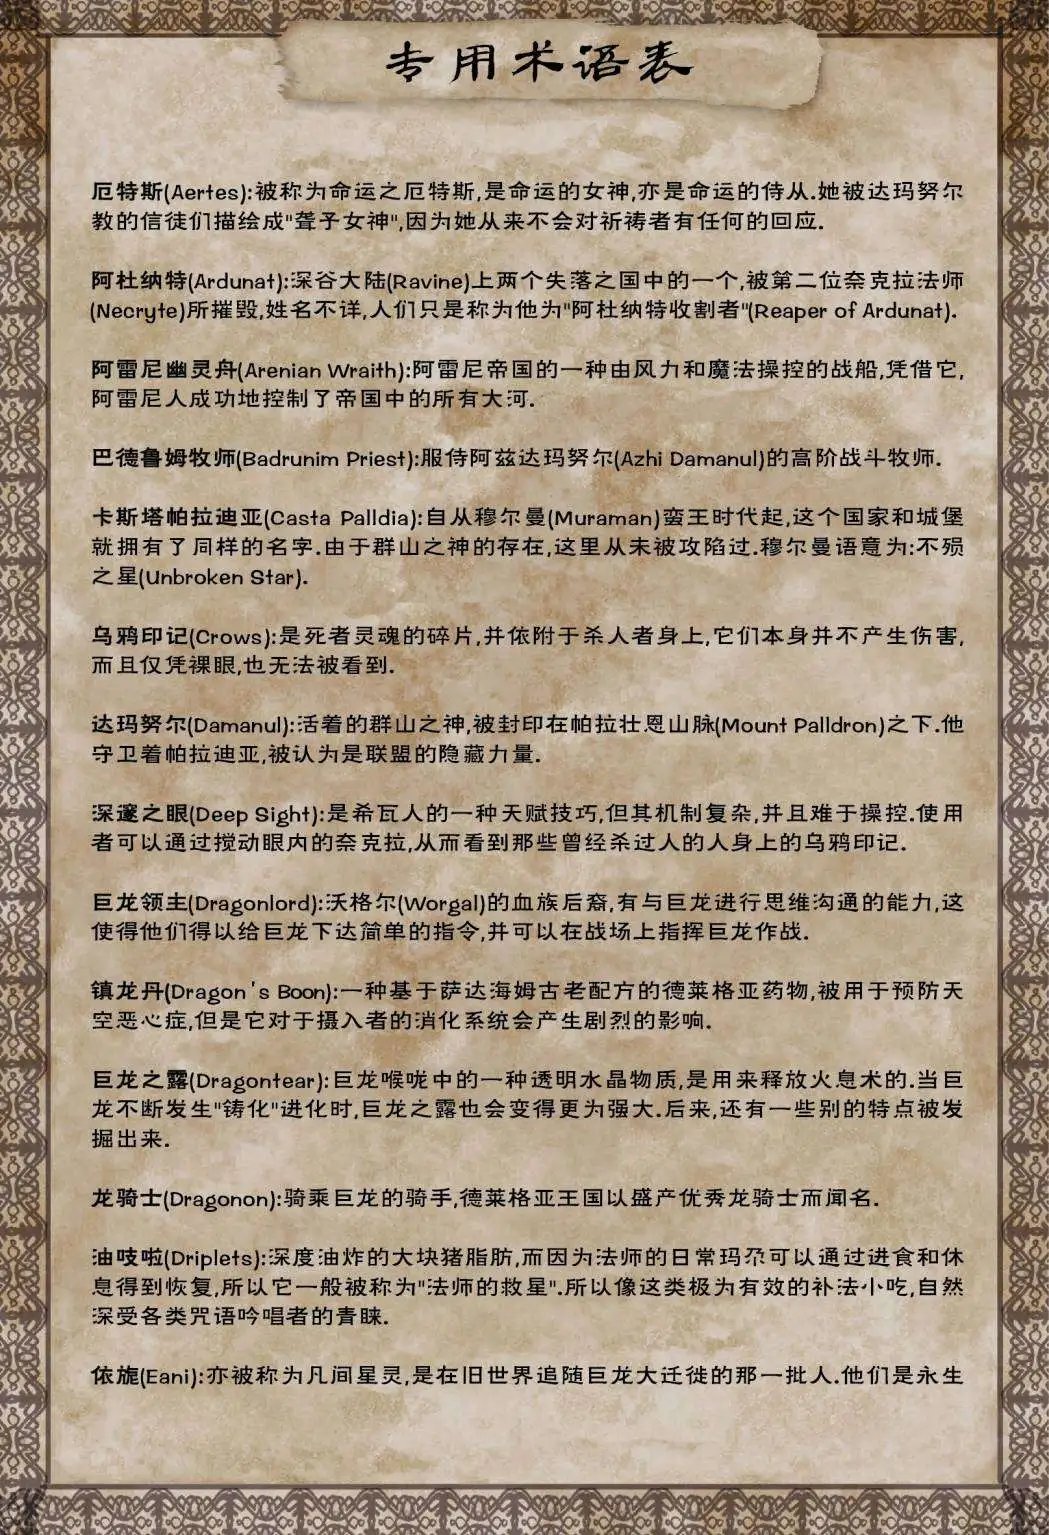 专用术语表
厄特斯(Aertes):被称为命运之厄特斯,是命运的女神,亦是命运的侍从.她被达玛努尔
教的信徒们描绘成"聋予女神",因为她从来不会对祈祷者有任何的回应.
阿杜纳特(Ardunat):深谷大陆(Ravine)上两个失落之国中的一个,被第二位奈克拉法师
(Necryte)所摧毁,姓名不详,人们只是称为他为"阿杜纳特收割者"(Reaper of Ardunat).
阿雷尼幽灵舟(Arenian Wraith):阿雷尼帝国的一种由风力和魔法操控的战船,凭借它,
阿雷尼人成功地控制了帝国中的所有大河.
巴德鲁姆牧师(Badrunim Priest):服侍阿兹达玛努尔(Azhi Damanul)的高阶战斗牧师.
卡斯塔帕拉迪亚(Casta Palldia):自从穆尔曼(Muraman)蛮王时代起,这个国家和城堡
就拥有了同样的名字.由于群山之神的存在,这里从未被攻陷过.穆尔曼语意为:不殒
之星(Unbroken Star).
乌鸦印记(Crows):是死者灵魂的碎片,并依附于杀人者身上,它们本身并不产生伤害,
而且仅凭裸眼,也无法被看到.
达玛努尔(Damanul):活着的群山之神,被封印在帕拉壮恩山脉(Mount Palldron)之下.他
守卫着帕拉迪亚,被认为是联盟的隐藏力量.
深邃之眼(Deep Sight):是希瓦人的一种天赋技巧,但其机制复杂,并且难于操控.使用
者可以通过搅动眼内的奈克拉,从而看到那些曾经杀过人的人身上的乌鸦印记.
巨龙领主(Dragonlord):沃格尔(Worgal)的血族后裔,有与巨龙进行思维沟通的能力,这
使得他们得以给巨龙下达简单的指令,并可以在战场上指挥巨龙作战.
镇龙丹(Dragon's Boon):一种基于萨达海姆古老配方的德莱格亚药物,被用于预防天
空恶心症,但是它对于摄入者的消化系统会产生剧烈的影响.
巨龙之露(Dragontear):巨龙喉咙中的一种透明水晶物质,是用来释放火息术的.当巨
龙不断发生"铸化"进化时,巨龙之露也会变得更为强大.后来,还有一些别的特点被发
掘出来.
龙骑士(Dragonon):骑乘巨龙的骑手,德莱格亚王国以盛产优秀龙骑士而闻名.
油吱啦(Driplets):深度油炸的大块猪脂肪,而因为法师的日常玛尕可以通过进食和休
息得到恢复,所以它一般被称为"法师的救星".所以像这类极为有效的补法小吃,自然
深受各类咒语吟唱者的青睐.
依旎(Eani):亦被称为凡间星灵,是在旧世界追随巨龙大迁徙的那一批人.他们是永生